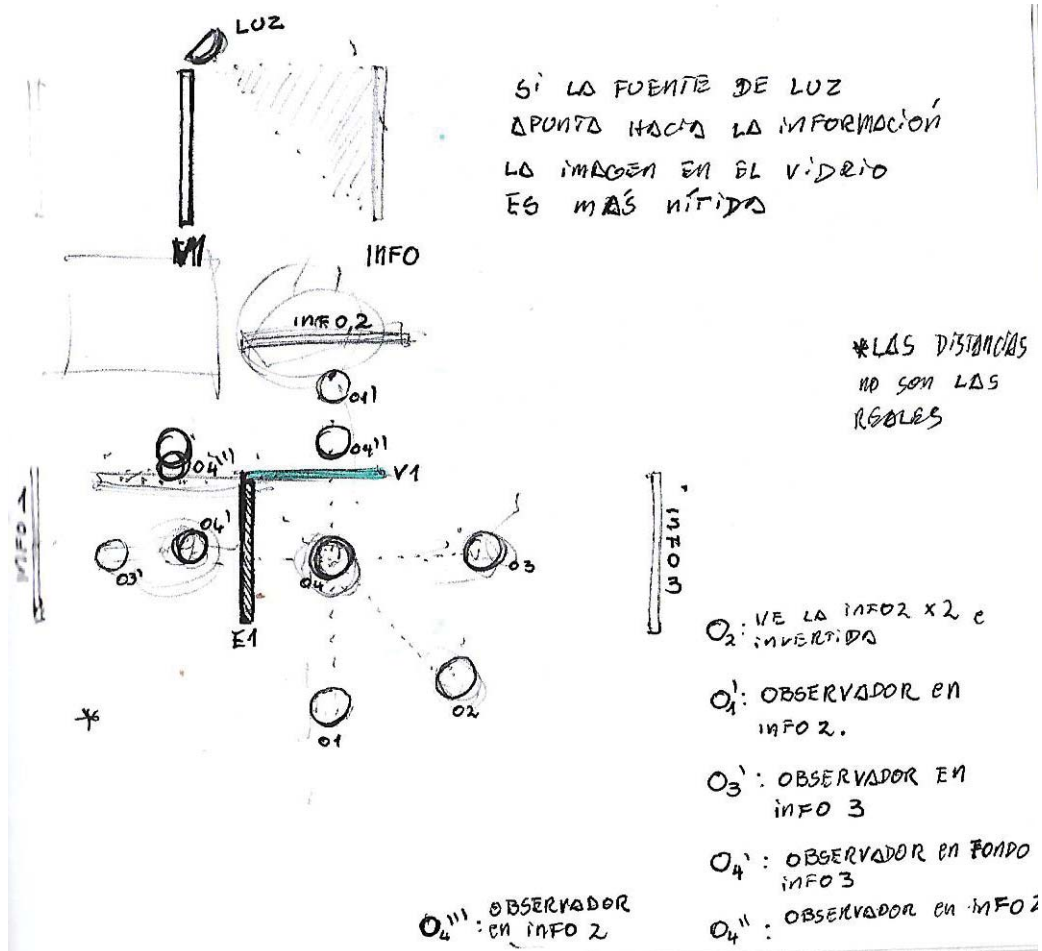 LUZ
SI LA FUENTE DE LUZ
APUNTA HACIA LA INFORMACIÓN
LA IMAGEN EN EL VIDRIO
ES MÁS NÍTIDA
INFO
INFO,2
*LAS DISTANCIAS
NO SON LAS
REALES
O1'
O4''
O4'''
V1
INFO 1
O4'
O3'
O4
O3
INFO 3
E1
O2
O1
*
O2: VE LA INFO2 X2 e
INVERTIDA
O1': OBSERVADOR EN
INFO 2.
O3': OBSERVADOR EN
INFO 3
O4': OBSERVADOR EN FONDO
INFO 3
O4'': OBSERVADOR EN INFO 2
O4''': OBSERVADOR
EN INFO 2